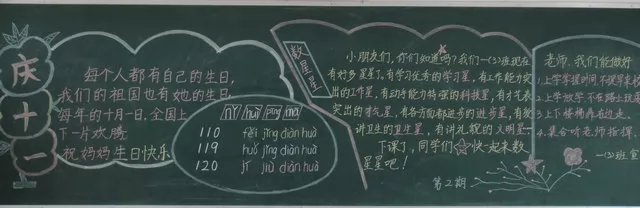 庆十一
每个人都有自己的生日,
我们的祖国也有她的生日,
每年的十月一日,全国上
下一片欢腾。
祝妈妈生日快乐
nǐ huì pīng ma
110 fěi jǐng diàn huà
119 huǒ jǐng diàn huà
120 jí jiù diàn huà
数星星
小朋友们,你们知道吗?我们一(3)班现在
有好多星星。有学习优秀的学习星,有工作能力突
出的工作星,有动手能力特强的科技星,有才艺表
突出的才艺星,有各方面都进步的进步星,有
讲卫生的卫生星,有讲礼貌的文明星。
下课了,同学们快一起来数
星星吧!
第2期
老师,我们能做好
1.上学掌握时间不提早来校
2.上学放学不在路上玩
3.上下楼梯靠右边走
4.集合听老师指挥
一(3)班宣